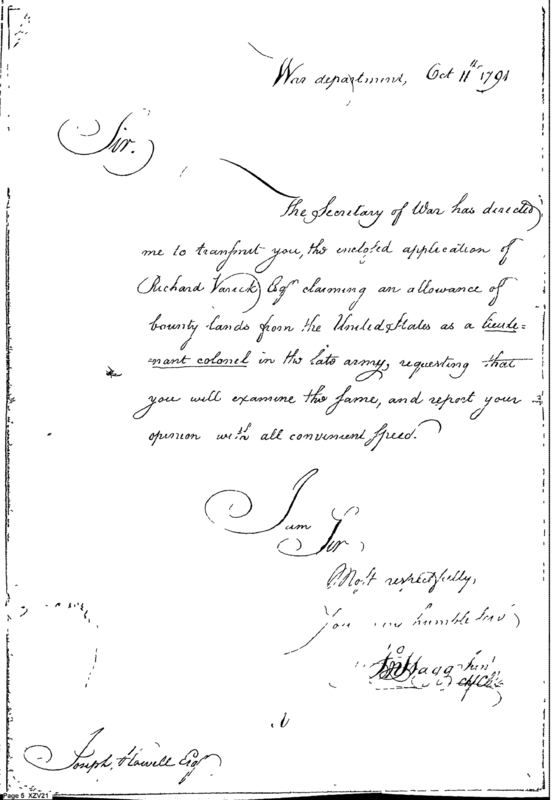 War department, Oct 11th 1791
Sir.
The Secretary of War has directed
me to transmit you, the enclosed application of
Richard Varick Esqr claiming an allowance of
bounty lands from the United States as a lieute=
=nant colonel in the late army, requesting that
you will examine the same, and report your
opinion with all convenient speed.
I am
Sir,
Most respectfully,
You humble Serv
Joseph Howell Esqr
Page 5 XZV21